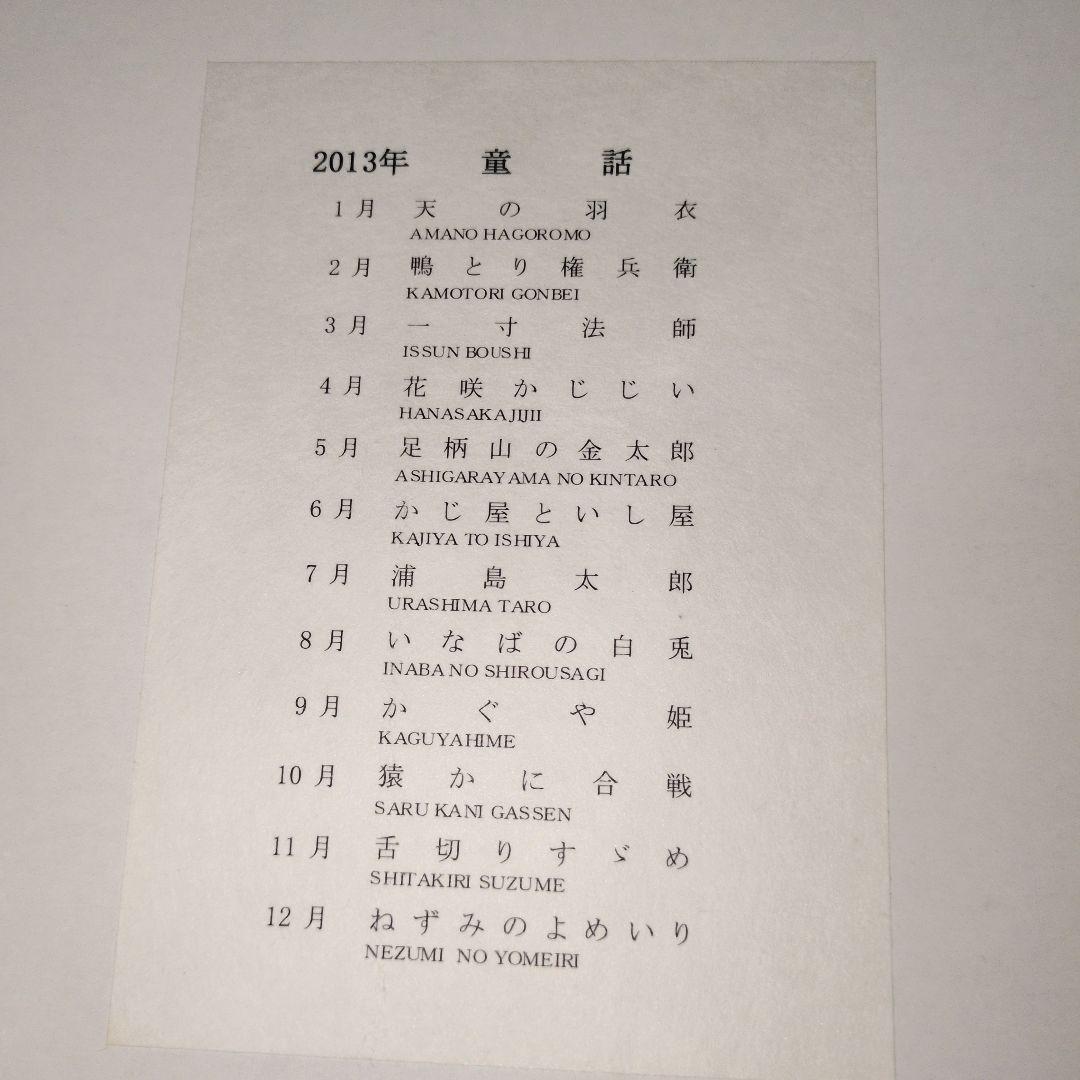 2013年 童話
1月 天の羽衣
AMANO HAGOROMO
2月 鴨とり権兵衛
KAMOTORI GONBEI
3月 一寸法師
ISSUN BOUSHI
4月 花咲かじじい
HANASAKAJIJII
5月 足柄山の金太郎
ASHIGARAYAMA NO KINTARO
6月 かじ屋といし屋
KAJIYA TO ISHIYA
7月 浦島太郎
URASHIMA TARO
8月 いなばの白兎
INABA NO SHIROUSAGI
9月 かぐや姫
KAGUYAHIME
10月 猿かに合戦
SARU KANI GASSEN
11月 舌切りすゞめ
SHITAKIRI SUZUME
12月 ねずみのよめいり
NEZUMI NO YOMEIRI